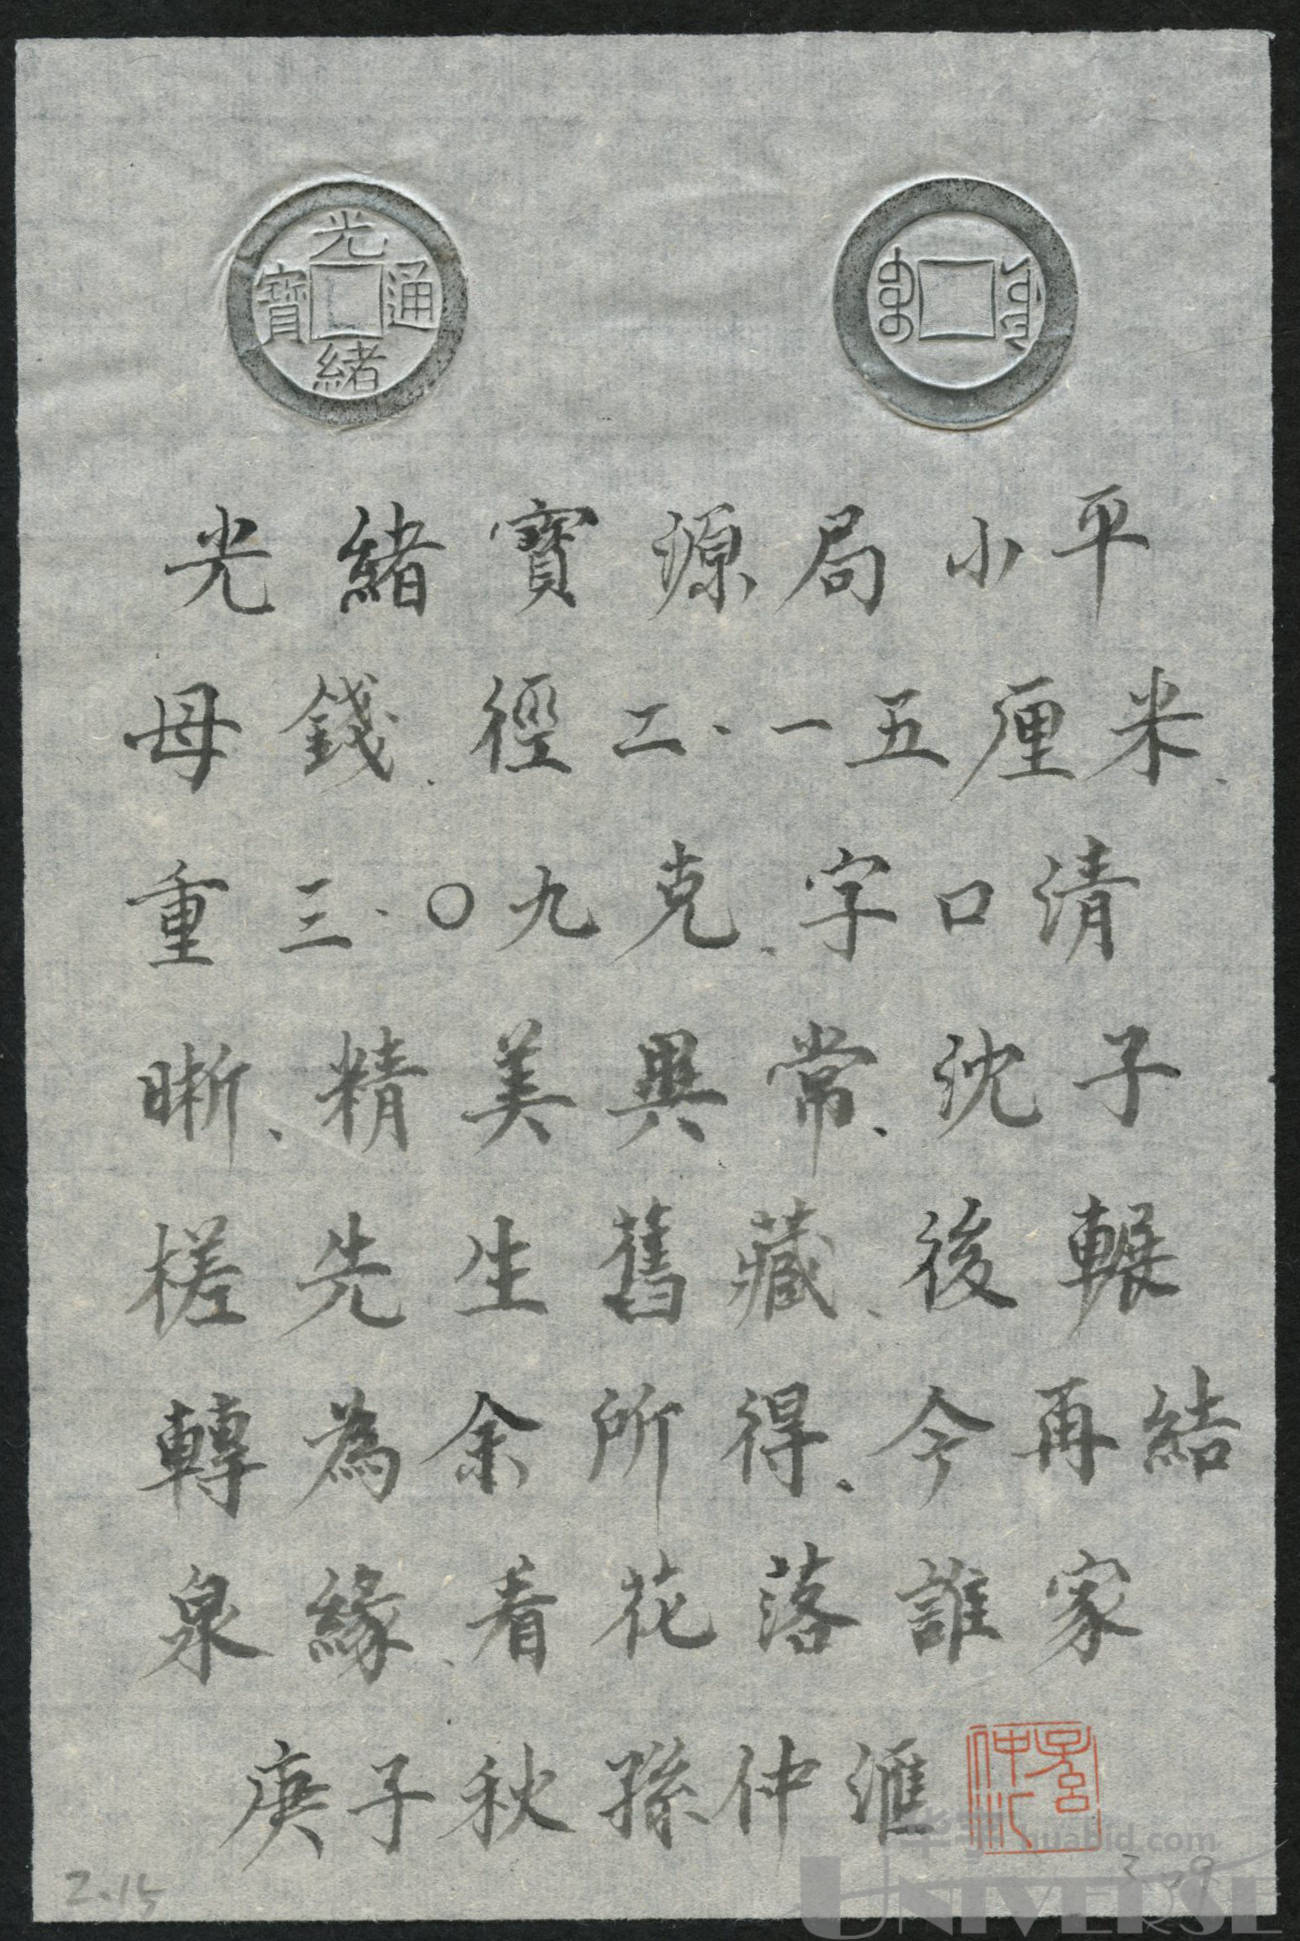 光緒通寶
光緒寶源局小平
母錢.徑二.一五厘米.
重三.〇九克.字口清
晰、精美異常、沈子
槎先生舊藏、後輾
轉為余所得、今再結
泉緣、看花落誰家
庚子秋孫仲滙
孫仲汇
华宇 huabid.com
UNIVERSE
2.15
3.09